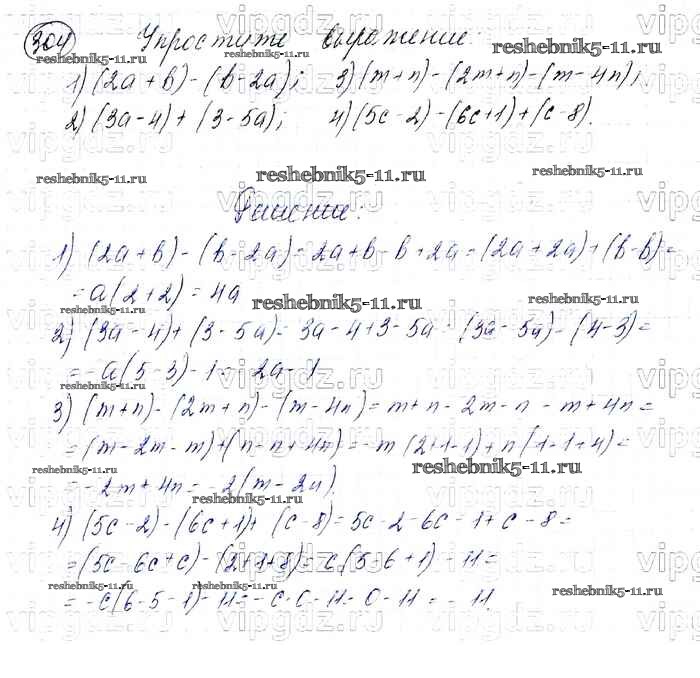 304 Упростите выражение.
1) (2a + b) - (b - 2a); 3) (m + n) - (2m + n) - (m - 4n);
2) (3a - 4) + (3 - 5a); 4) (5c - 2) - (6c + 1) + (c - 8).
Решение:
1) (2a + b) - (b - 2a) = 2a + b - b + 2a = (2a + 2a) + (b - b) =
= a(2 + 2) = 4a
2) (3a - 4) + (3 - 5a) = 3a - 4 + 3 - 5a = (3a - 5a) - (4 - 3) =
= -a(5 - 3) - 1 = -2a - 1
3) (m + n) - (2m + n) - (m - 4n) = m + n - 2m - n - m + 4n =
= (m - 2m - m) + (n - n + 4n) = -m(2+1-1) + n(1-1+4) =
= -2m + 4n = -2(m - 2n).
4) (5c - 2) - (6c + 1) + (c - 8) = 5c - 2 - 6c - 1 + c - 8 =
= (5c - 6c + c) - (2+1+8) = c(5 - 6 + 1) - 11 =
= -c(6 - 5 - 1) - 11 = -c·0 - 11 = 0 - 11 = -11
reshebnik5-11.ru
vipgdz.ru